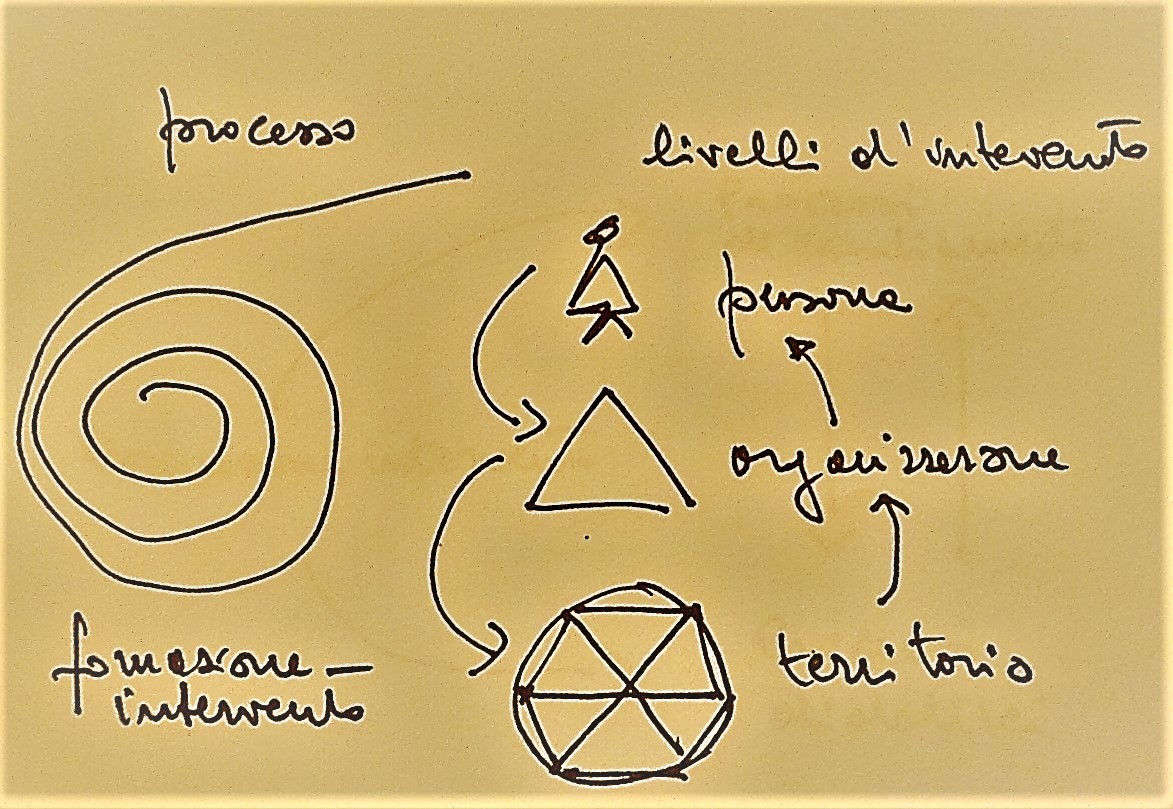 processo
livelli d'intervento
persona
organizzazione
territorio
formazione-
intervento